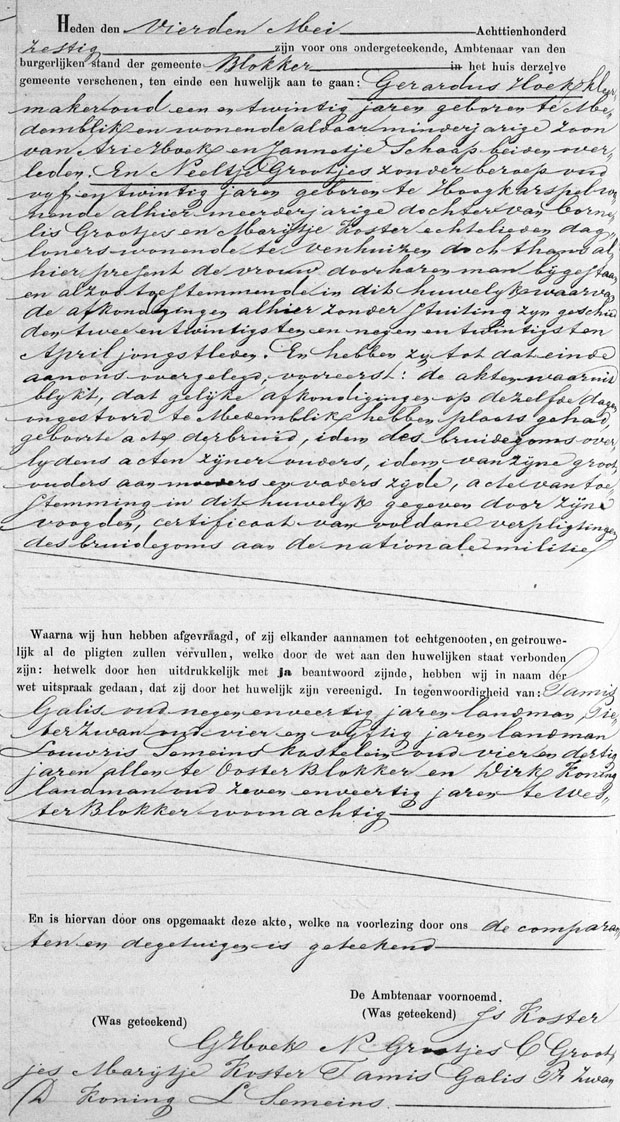 Heden den Vierden Mei Achttienhonderd
zestig zijn voor ons ondergeteekende, Ambtenaar van den
burgerlijken stand der gemeente Blokker in het huis derzelve
gemeente verschenen, ten einde een huwelijk aan te gaan: Gerardus Hoek kleer
maker oud een en twintig jaren geboren te Me-
demblik en wonende aldaar minderjarige zoon
van Arie Hoek en Jannetje Schaap beiden over-
leden. En Neeltje Grootjes zonder beroep oud
vyf en twintig jaren geboren te Hoogkarspel wo-
nende alhier meerderjarige dochter van Corne
lis Grootjes en Marijtje Koster echtelieden dag-
loners wonende te Venhuizen doch thans al-
hier present de vrouw door haren man bijgestaan
en alzoo toestemmende in dit huwelyk waarvan
de afkondigingen alhier zonder stuiting zyn geschie
den twee en twintigsten en negen en twintigsten
April jongstleden. En hebben zy tot dat einde
aan ons overgelegd, vooreerst: de akten waaruit
blykt, dat gelijke afkondigingen op dezelfde dagen
ongestoord te Medemblik hebben plaats gehad
geboorte acte der bruid, idem des bruidegoms over-
lydens acten zyner ouders, idem van zyne groot-
ouders aan moeders en vaders zyde, acte van toe-
stemming in dit huwelyk gegeven door zyne
voogden, certificaat van voldane verpligtingen
des bruidegoms aan de nationale militie
Waarna wij hun hebben afgevraagd, of zij elkander aannamen tot echtgenooten, en getrouwe-
lijk al de pligten zullen vervullen, welke door de wet aan den huwelijken staat verbonden
zijn: hetwelk door hen uitdrukkelijk met ja beantwoord zijnde, hebben wij in naam der
wet uitspraak gedaan, dat zij door het huwelijk zijn vereenigd. In tegenwoordigheid van: Tamis
Galis oud negen en veertig jaren landman, Pie-
ter Zwan oud vier en vyftig jaren landman
Louwris Semeins kastelein oud vier en dertig
jaren allen te Ooster Blokker en Dirk Koning
landman oud zeven en veertig jaren te Wes-
ter Blokker woonachtig
En is hiervan door ons opgemaakt deze akte, welke na voorlezing door ons de comparan
ten en de getuigen is geteekend
De Ambtenaar voornoemd,
(Was geteekend) (Was geteekend) Js Koster
G Hoek N Grootjes C Groot-
jes Marijtje Koster Tamis Galis Pr Zwan
D Koning L Semeins.